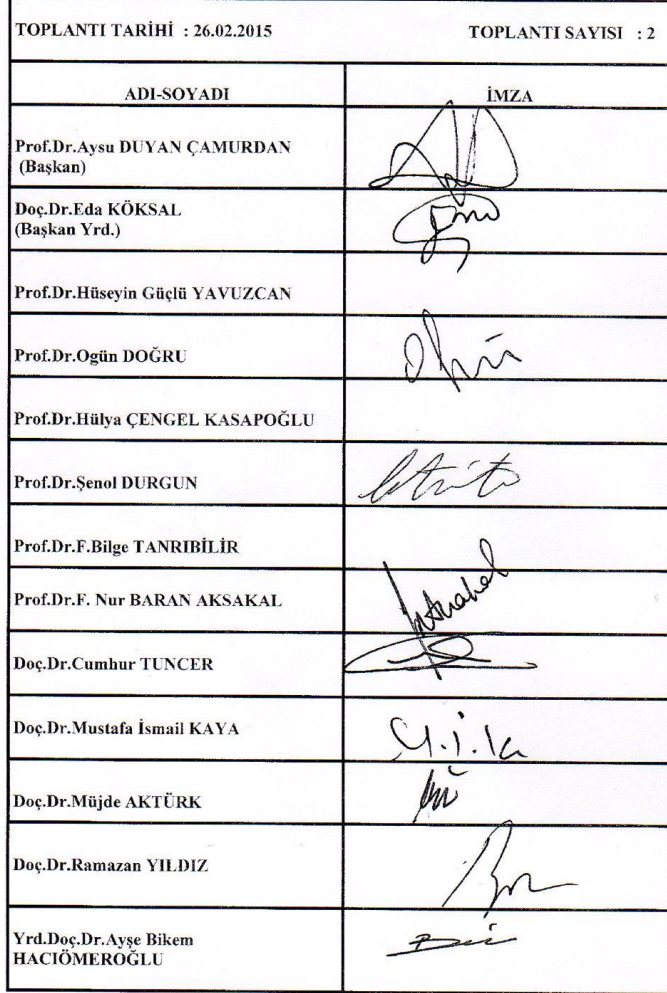 TOPLANTI TARİHİ : 26.02.2015 TOPLANTI SAYISI : 2
ADI-SOYADI İMZA
Prof.Dr.Aysu DUYAN ÇAMURDAN
(Başkan)
Doç.Dr.Eda KÖKSAL
(Başkan Yrd.)
Prof.Dr.Hüseyin Güçlü YAVUZCAN
Prof.Dr.Ogün DOĞRU
Prof.Dr.Hülya ÇENGEL KASAPOĞLU
Prof.Dr.Şenol DURGUN
Prof.Dr.F.Bilge TANRIBİLİR
Prof.Dr.F. Nur BARAN AKSAKAL
Doç.Dr.Cumhur TUNCER
Doç.Dr.Mustafa İsmail KAYA
Doç.Dr.Müjde AKTÜRK
Doç.Dr.Ramazan YILDIZ
Yrd.Doç.Dr.Ayşe Bikem
HACIÖMEROĞLU